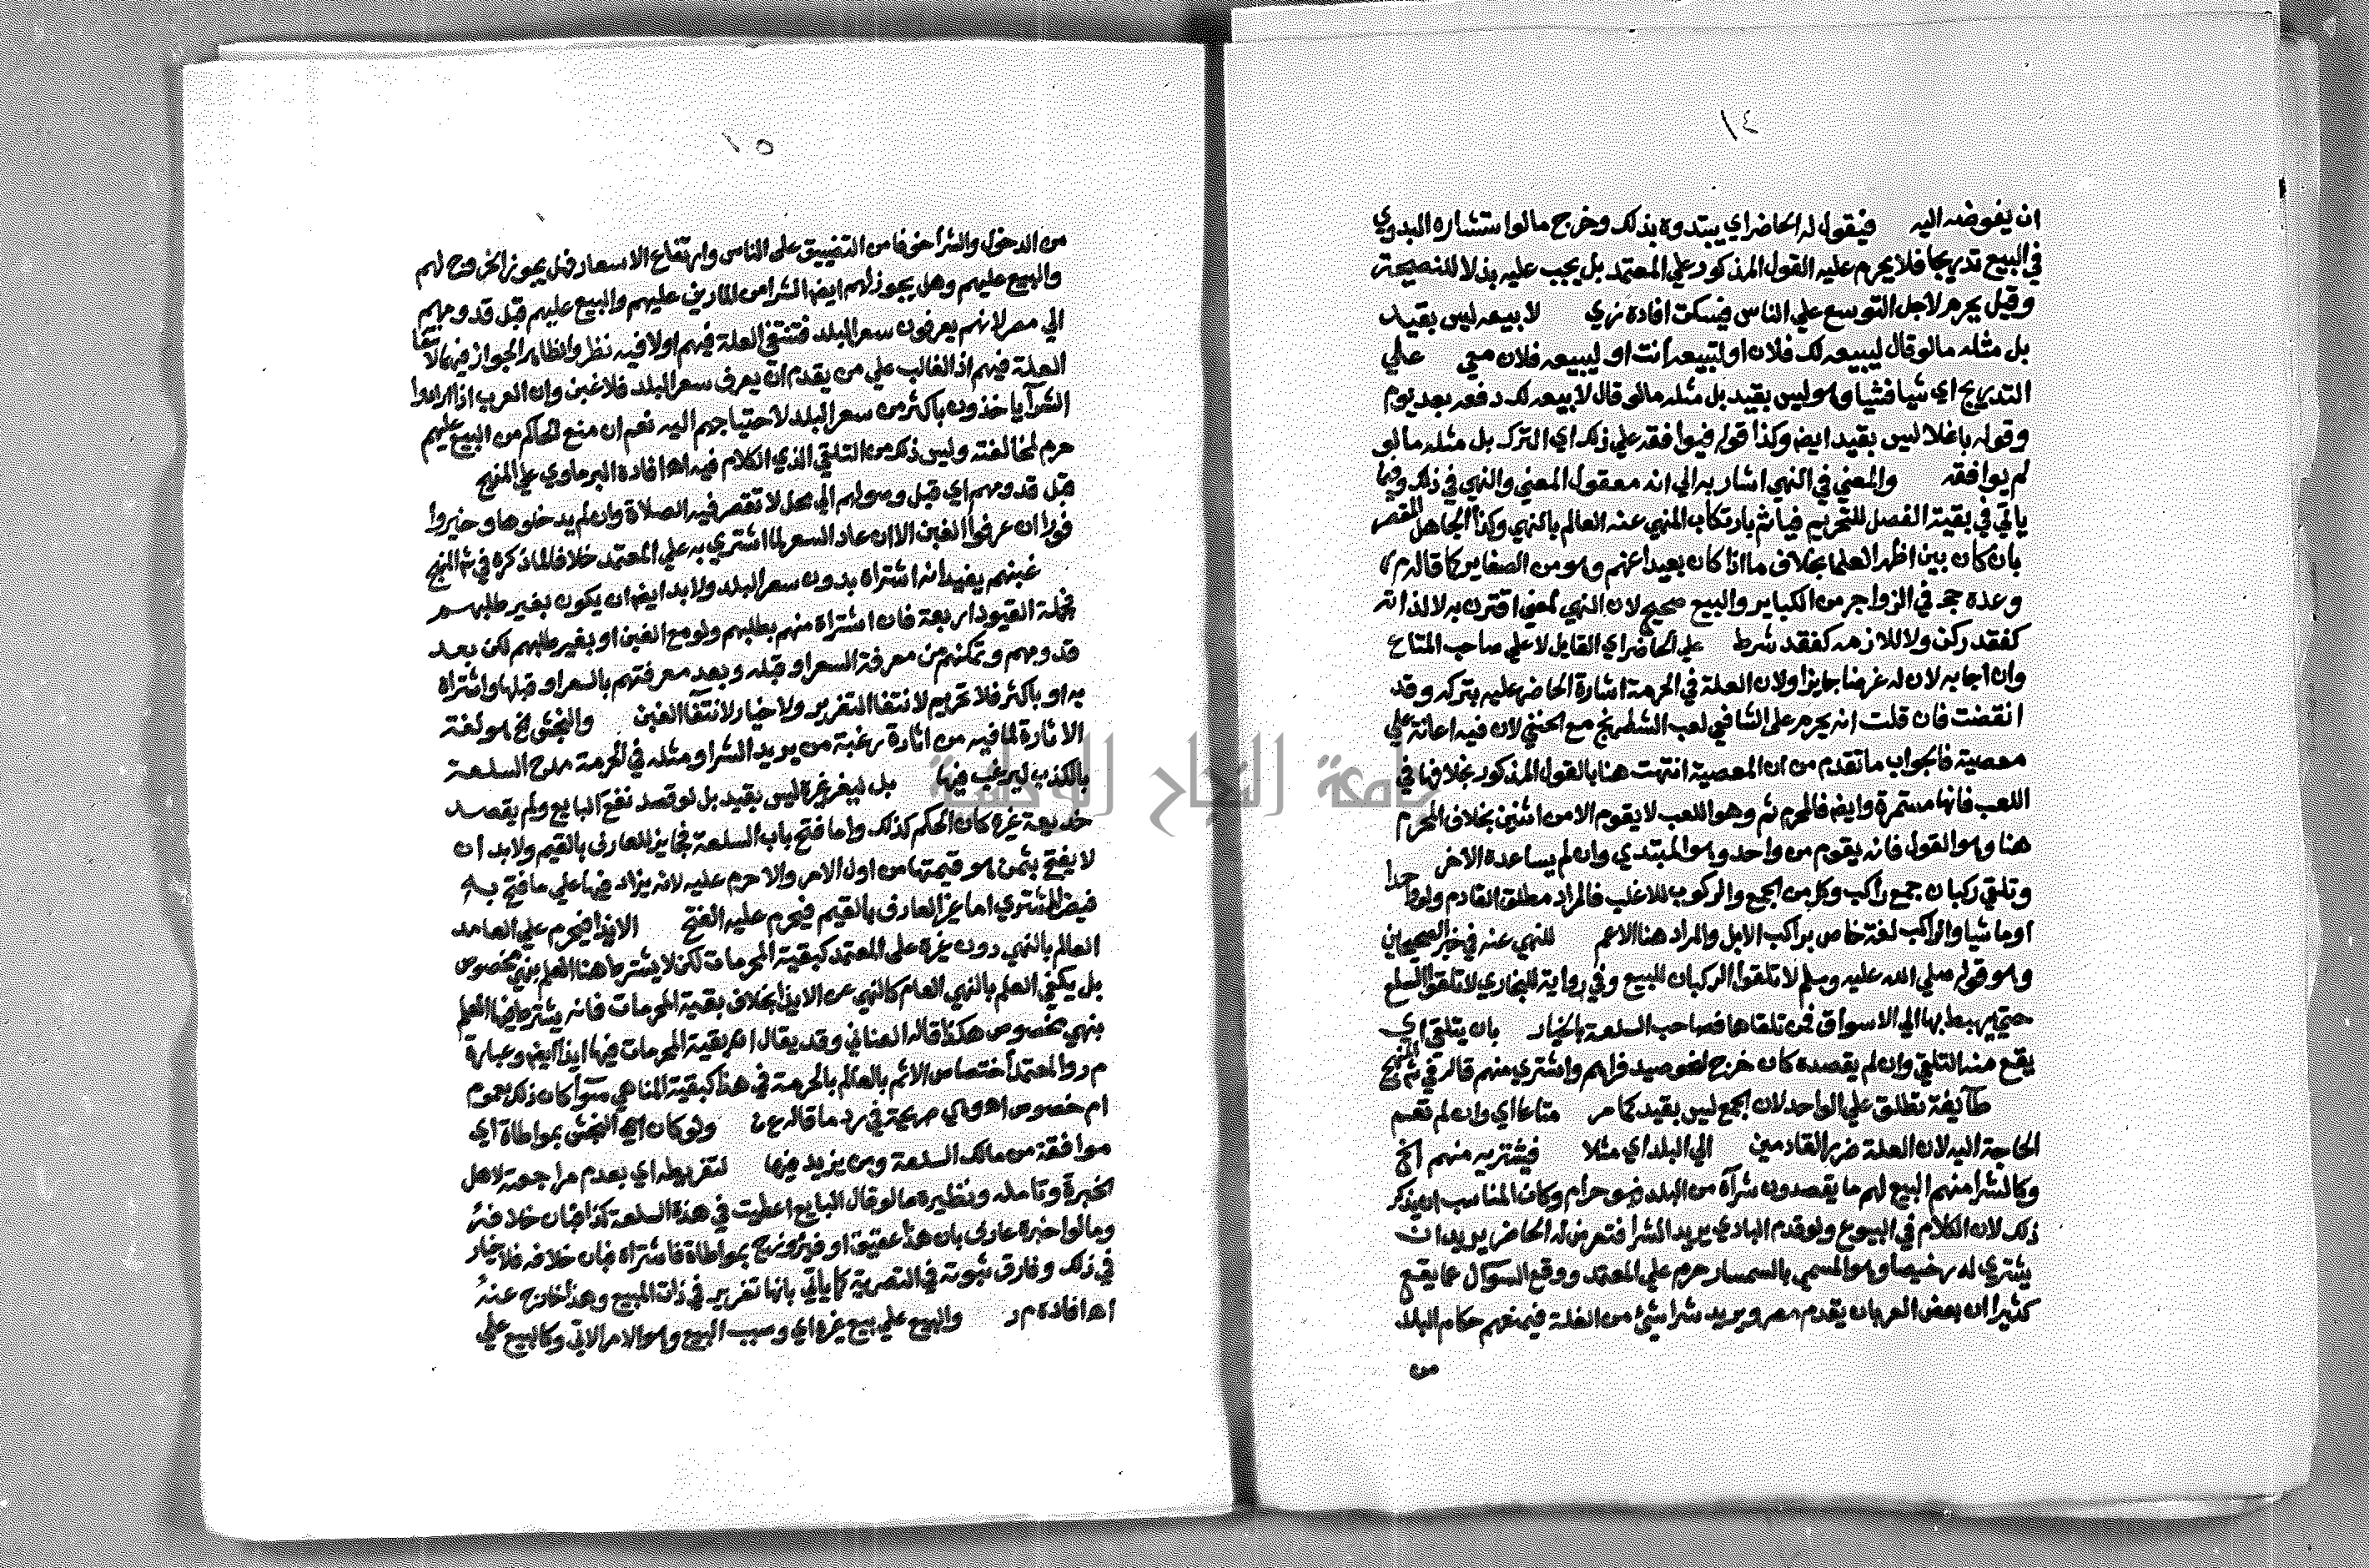 ١٤
ان يفوضه اليه فيقول له الحاضر اي يبتدوه بذلك وخرج ما لو استشاره البدوي
في البيع تدريجا فلا يحرم عليه القول المذكور علي المعتمد بل يجب عليه بذلا للنصيحة
وقيل يحرم لاجل التوسع علي الناس فيسكت افاده زي لابيعه ليس بقيد
بل مثله ما لو قال ليبيعه لك فلان او لتبيعه انت او ليبيعه فلان معي علي
التدريج اي شيا فشيا وهو ليس بقيد بل مثله ما لو قال لابيعه لك دفعه بعد يوم
وقوله باغلا ليس بقيد ايض وكذا قوله فيوافقه علي ذلك اي الترك بل مثله ما لو
لم يوافقه والمعني في النهي اشار به الي انه معقول المعني والنهي في ذلك وفيما
ياتي في بقية الفصل للتحريم فياثم بارتكاب المنهي عنه العالم بالنهي وكذا الجاهل المقصر
بان كان بين اظهر العلما بخلاف ما اذا كان بعيدا عنهم وهو من الصغاير كما قاله م ر
وعده حجر في الزواجر من الكباير والبيع صحيح لان النهي لمعني اقترن به لا لذاته
كفقد ركن ولا للازمه كفقد شرط علي الحاضر اي القايل لا علي صاحب المتاع
وان اجابه لان له غرضا جايزا ولان العلة في الحرمة اشارة الحاضر عليه بتركه وقد
انقضت فان قلت انه يحرم علي الشافعي لعب الشطرنج مع الحنفي لان فيه اعانة علي
معصية فالجواب ما تقدم من ان المعصية انتهت هنا بالقول المذكور بخلافها في
اللعب فانها مستمرة وايض فالمحرم ثم وهو اللعب لا يقوم الا من اثنين بخلاف المحرم
هنا وهو القول فانه يقوم من واحد وهو المبتدي وان لم يساعده الاخر
وتلقي ركبان جمع راكب وكل من الجمع والركوب للاغلب فالمراد مطلق القادم ولو واحدا
او ماشيا والراكب لغة خاص براكب الابل والمراد هنا الاعم للنهي عنه في خبر الصحيحين
وهو قوله صلي الله عليه وسلم لا تلقوا الركبان للبيع وفي رواية للبخاري لا تلقوا السلع
حتي يهبط بها الي الاسواق فمن تلقاها فصاحب السلعة بالخيار بان يتلقي اي
يقع منه التلقي وان لم يقصده كان خرج لنحو صيد فراهم واشتري منهم قاله في شم المنهج
طايفة تطلق علي الواحد لان الجمع ليس بقيد كما مر متاعا اي وان لم تعم
الحاجة اليه لان العلة ضرر القادمين الي البلد اي مثلا فيشتريه منهم الخ
وكالشرا منهم البيع لهم ما يقصدون شراه من البلد فهو حرام وكان المناسب ان يذكر
ذلك لان الكلام في البيوع ولو قدم البادي يريد الشرا فتعرض له الحاضر يريد ان
يشتري له رخيصا وهو المسمي بالسمسار حرم علي المعتمد ووقع السوال عما يقع
كثيرا ان بعض العربان يقدم مصر ويريد شرا شيئ من الغلة فيمنعهم حكام البلد
من
١٥
من الدخول والشرا خوفا من التضييق علي الناس وارتفاع الاسعار فهل يجوز الخروج لهم
والبيع عليهم وهل يجوز لهم ايض الشرا من المارين عليهم والبيع عليهم قبل قدومهم
الي مصر لانهم يعرفون سعر البلد فتنتفي العلة فيهم او لا فيه نظر والظاهر الجواز فيهما لانتفا
العلة فيهم اذ الغالب علي من يقدم ان يعرف سعر البلد فلا غبن وان العرب اذا ارادوا
الشرا ياخذون باكثر من سعر البلد لاحتياجهم اليه نعم ان منع الحاكم من البيع عليهم
حرم لمخالفته وليس ذلك من التلقي الذي الكلام فيه اهـ افاده البرماوي علي المنهج
قبل قدومهم اي قبل وصولهم الي محل لا تقصر فيه الصلاة وان لم يدخلوها وخيروا
فورا ان عرفوا الغبن الا ان عاد السعر لما اشتري به علي المعتمد خلافا لما ذكره في شم المنهج
غبنهم يفيد انه اشتراه بدون سعر البلد ولا بد ايض ان يكون بغير طلبهم
فجملة القيود اربعة فان اشتراه منهم بطلبهم ولو مع الغبن او بغير طلبهم لكن بعد
قدومهم وتمكنهم من معرفة السعر او قبله وبعد معرفتهم بالسعر او قبلها واشتراه
به او باكثر فلا تحريم لانتفا التغرير ولا خيار لانتفا الغبن والنجش الخ هو لغة
الاثارة لما فيه من اثارة رغبة من يريد الشرا ومثله في الحرمة مدح السلعة
بالكذب ليرغب فيها بل ليغر غيره ليس بقيد بل لو قصد نفع البايع ولم يقصد
خديعة غيره كان الحكم كذلك واما فتح باب السلعة فجايز للعارف بالقيم ولا بد ان
لا يفتح بثمن هو قيمتها من اول الامر والا حرم عليه لانه يزاد فيها علي ما فتح به
فيضر المشتري اما غير العارف بالقيم فيحرم عليه الفتح الايذا فيحرم علي العامد
العالم بالنهي دون غيره علي المعتمد كبقية المحرمات لكن لا يشترط هنا العلم بنهي مخصوص
بل يكفي العلم بالنهي العام كالنهي عن الايذا بخلاف بقية المحرمات فانه يشترط فيها العلم
بنهي مخصوص هكذا قاله العناني وقد يقال ان بقية المحرمات فيها ايذا ايض وعبارة
م ر والمعتمد اختصاص الاثم بالعالم بالحرمة في هذا كبقية المناهي سوا كان ذلك بعموم
ام خصوص اهـ وهي صريحة في رد ما قاله ع ن ولو كان اي النجش بمواطاة اي
موافقة من مالك السلعة ومن يزيد فيها لتفريطه اي بعدم مراجعة لاهل
الخبرة وتامله ونظيره ما لو قال البايع اعطيت في هذه السلعة كذا فبان خلافه
وما لو اخبره عارف بان هذا عقيق او فيروزج بمواطاة فاشتراه فبان خلافه فلا خيار
في ذلك وفارق ثبوته في التصرية كما ياتي بانها تغرير في ذات المبيع وهذا خارج عنه
اهـ افاده م ر والبيع علي بيع غيره اي وسبب البيع وهو الامر الاتي وكالبيع علي
جامعة النجاح الوطنية